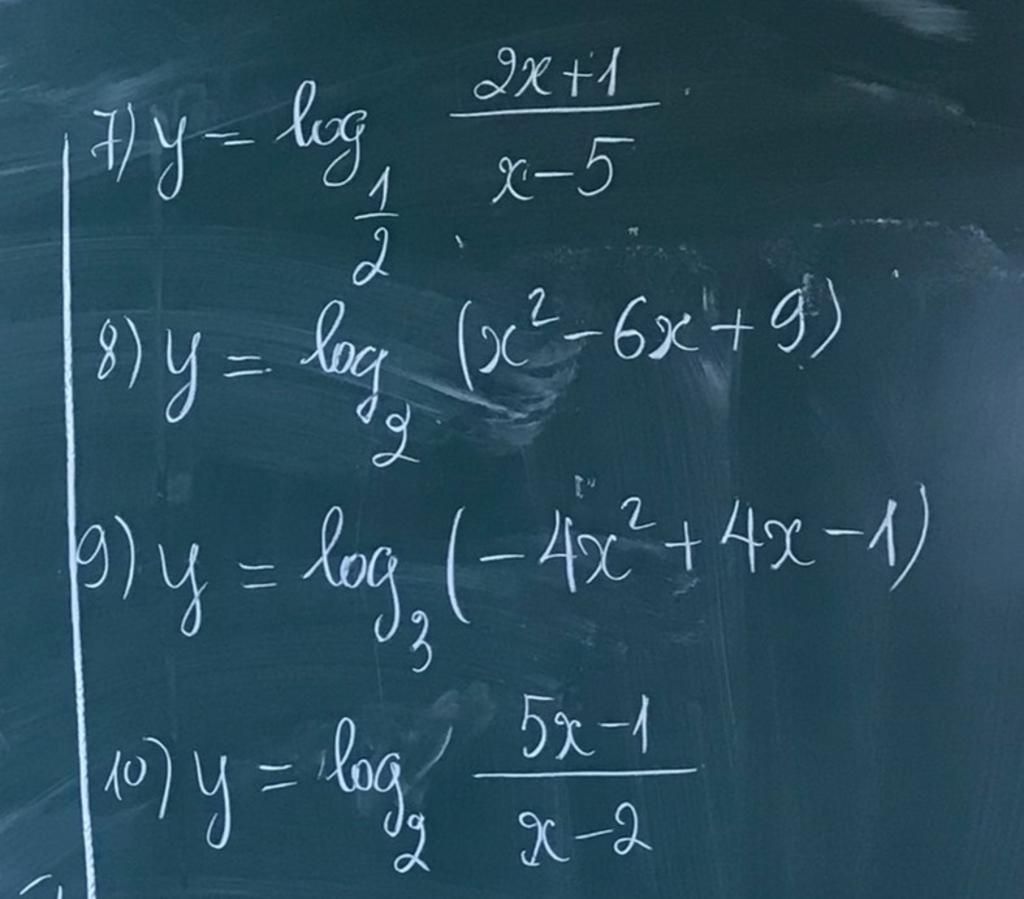 7) y = log_{1/2} (2x+1)/(x-5)
8) y = log_2 (x² - 6x + 9)
9) y = log_3 (-4x² + 4x - 1)
10) y = log_2 (5x-1)/(x-2)